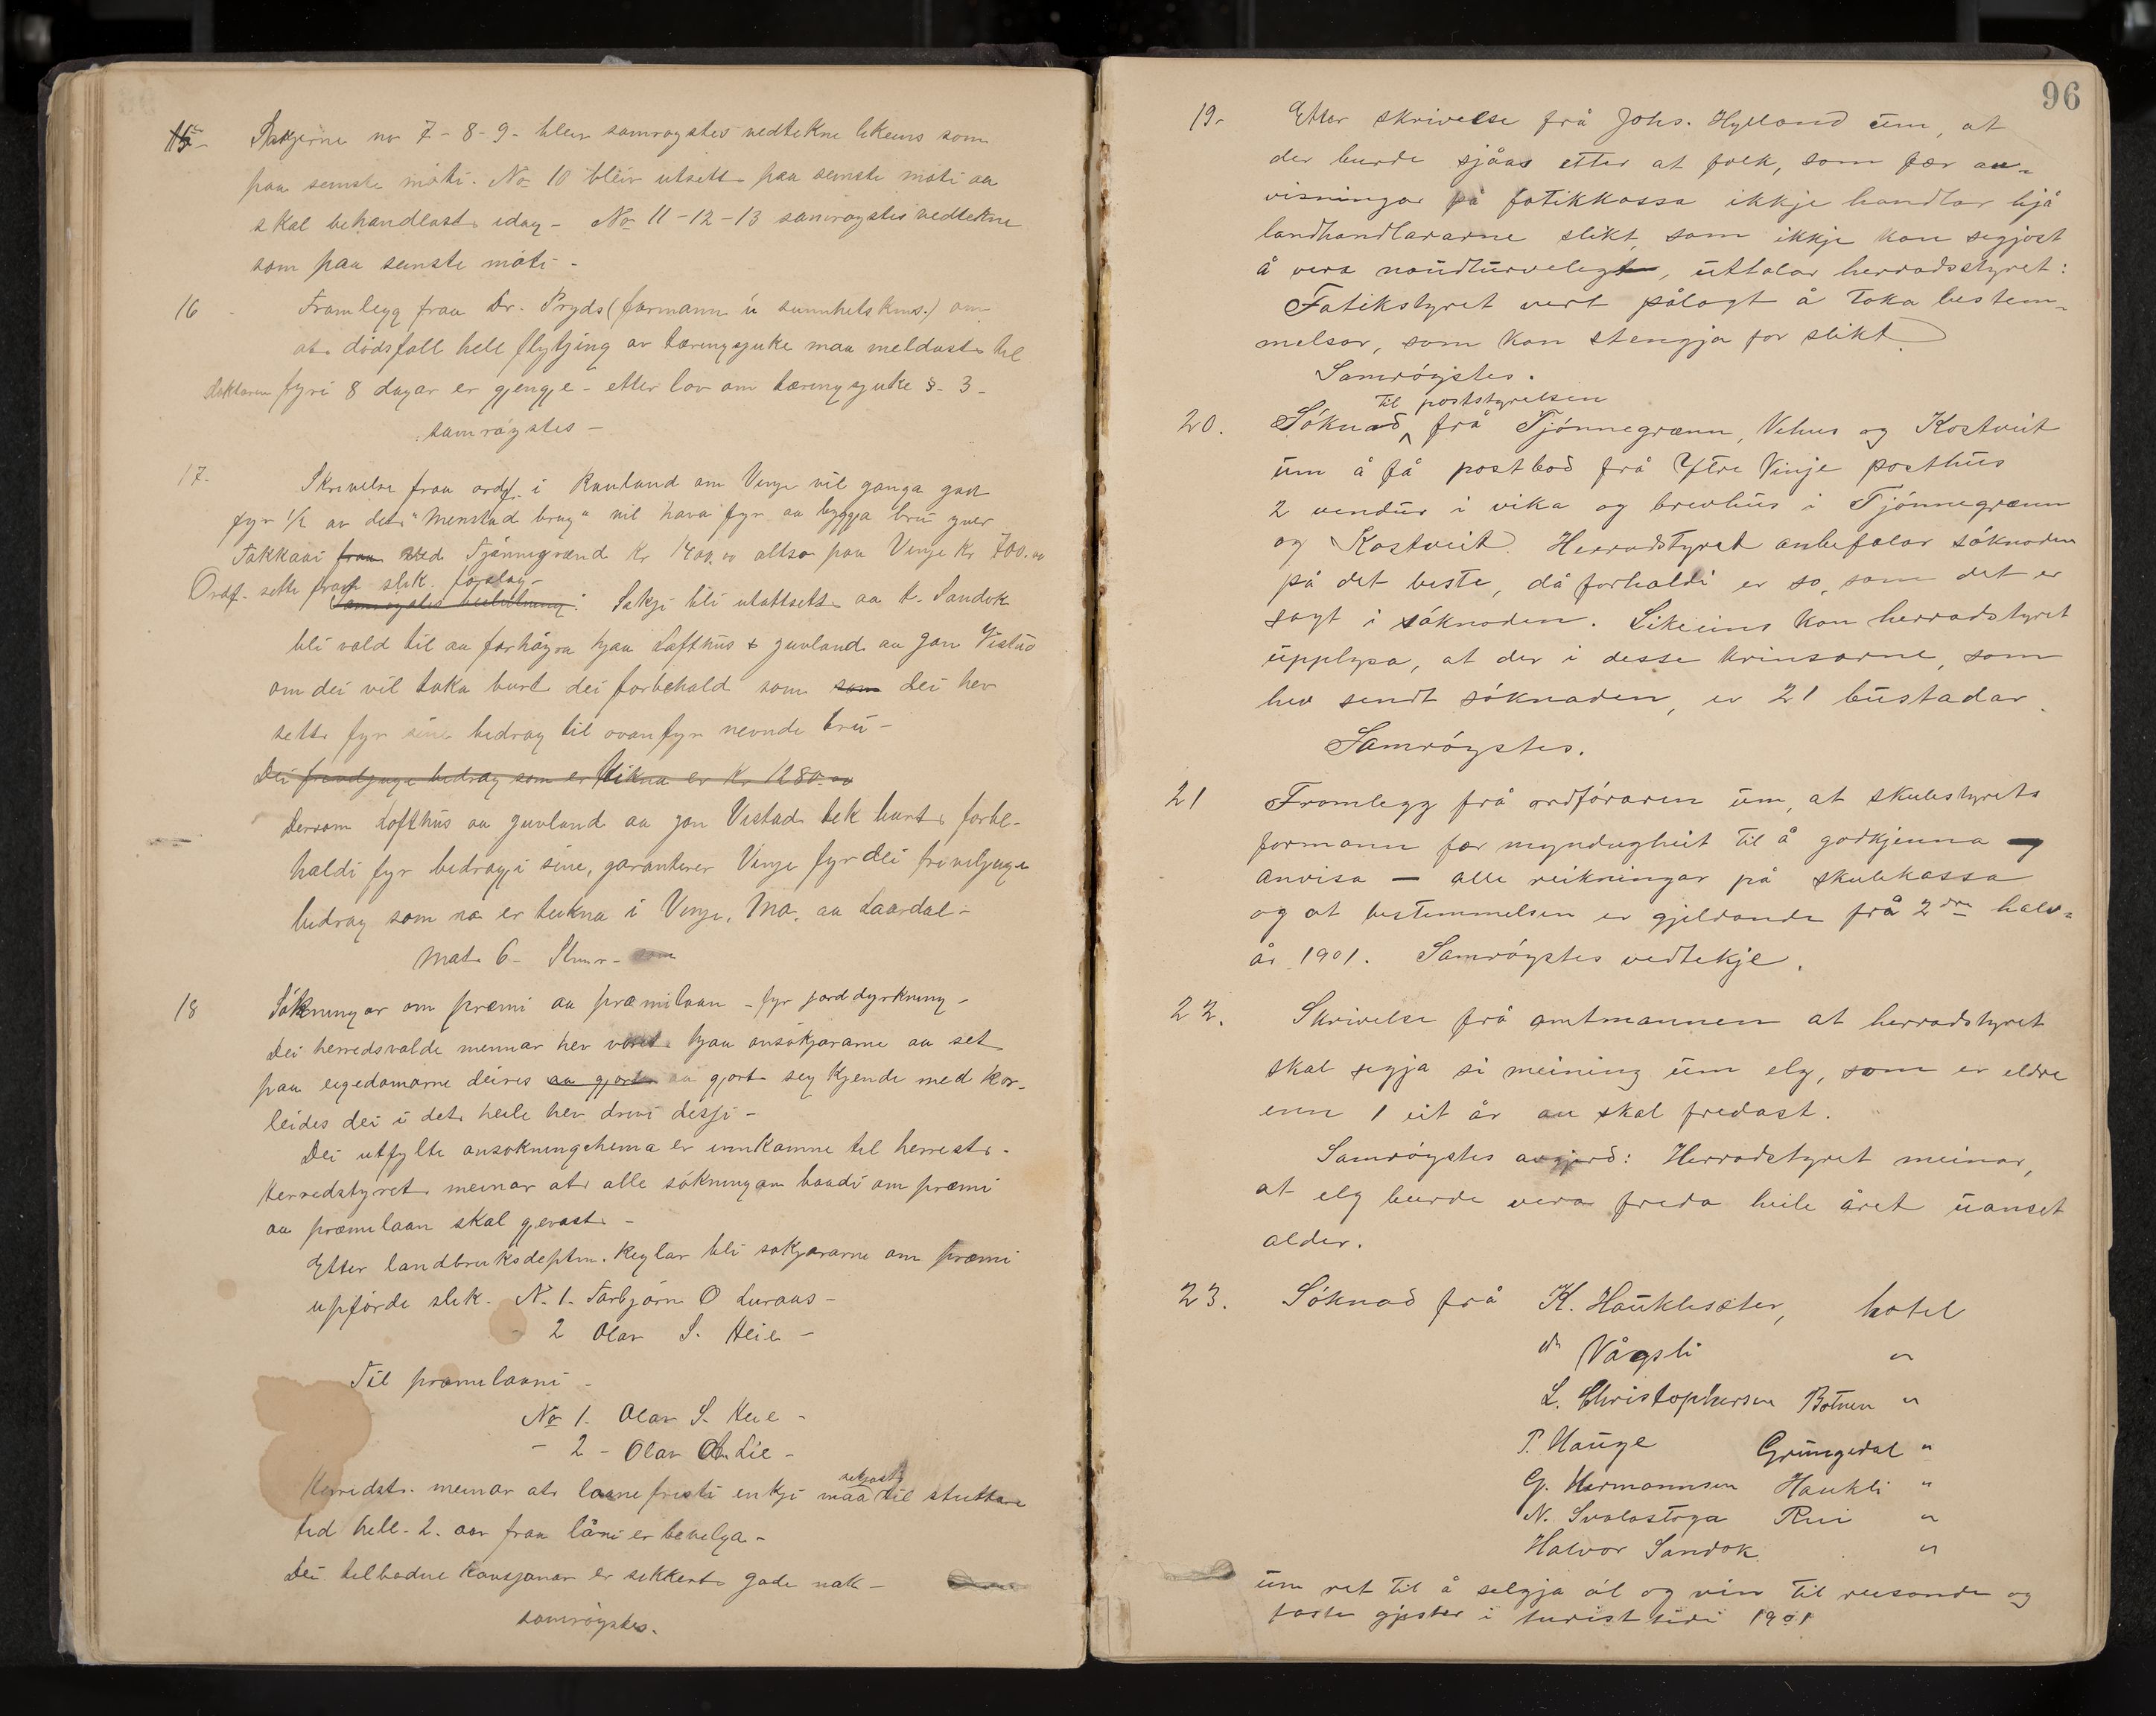 15- Sakjerne no 7 - 8 - 9 - blev samrøystes vedtekne likeins som
paa semste møti. No 10 bleiv utsett paa semste møti aa
skal behandlast idag - No 11 - 12 - 13 samrøystes vedtekne
som paa semste møti -
16 - Framlegg fraa Dr. Pryds (formann i sunnhetskms.) om
at dødsfall hell flytjing av tæringsjuke maa meldast til
doktaren fyri 8 dagar er gjengje - etter lov om tæringsjuke § - 3 -
samrøystes -
17. Skrivelse fraa ordf. i Rauland om Vinje vil ganga god
fyr 1/2 av det "Menstad brug" vil hava fyr aa byggja bru yver
Tokkaai fraa ved Tjønnegrend Kr 1400.00 altso paa Vinje Kr 700.00
Ordf. sette fram slik forslag -
Samrøystes beslutning: Sakji bli utattsett aa H. Sandok
bli vald til aa forhøyra hjaa Lofthus & Juvland aa Jon Vistad
om dei vil taka burt dei forbehald som som dei hev
sett fyr sine bidrag til ovanfyr nevnde bru -
Dei friveljuge bidrag som er tikna er Kr 1280.00
Dersom Lofthus aa Juvland aa Jon Vistad tek burt forbe-
haldi fyr bidragji sine, garanterer Vinje fyr dei friveljuge
bidrag som no er tekna i Vinje, Mo, aa Laardal -
mot 6
18 Søkningar om præmi aa præmilaan - fyr jorddyrkning -
Dei herredsvalde mennar hev voret hjaa ansøkjararne aa set
paa eigedomarne deires aa gjort aa gjort seg kjende med kor-
leides dei i det heile hev drivi dessi -
Dei utfylte ansøkningschema er innkomne til herrest. -
Herredstyret meinar at alle søkningan baadi om præmi
aa præmilaan skal gjevast -
Etter landbruksdeptm. Reglar bli søkjararne om præmi
upførde slik - N. 1. Tarbjørn O Luraas -
- 2 Olav S. Heie -
Til præmilaani -
No 1. Olav S. Heie -
- 2 - Olav Lie -
Herredst. meinar at laanefristi inkji maa setjast til stuttare
tid hell - 2. aar fraa låni er bevilga -
Dei tilbodne kausjonar er sikkert gode nok -
samrøystes.
96
19. Etter skrivelse frå Johs. Hylland um, at
der burde sjåas etter at folk, som fær an-
visningar på fatikkassa ikkje handlar hjå
landhandlararne slikt, som ikkje kan segjast
å vera naudturvelegt, uttalar herradsstyret:
Fatikstyret vert pålagt å taka bestem-
melsar, som kan stengja for slikt.
Samrøystes.
til poststyrelsen
20. Søknad frå Tjønnegrænn, Vehus og Kostveit
um å få postbod frå Ytre Vinje posthus
2 vendur i vika og brevhus i Tjønnegrænn
og Kostveit. Herradstyret anbefalar søknaden
på det beste, då forholdi er so, som det er
sagt i søknaden. Likeeins kan herradstyret
upplysa, at der i desse krinsarne, som
hev sendt søknaden, er 21 bustadar.
Samrøystes.
21 Framlegg frå ordføraren um, at skulestyrets
formann fær myndugheit til å godkjenna -
anvisa - alle reikningar på skulekassa
og at bestemmelsen er gjeldande frå 2dre halv-
år 1901. Samrøystes vedtekje.
22. Skrivelse frå amtmannen at herradstyret
skal segja si meining um elg, som er eldre
enn 1 eit år au skal fredast.
Samrøystes avgjerd: Herradstyret meinar,
at elg burde vera freda heile året uanset
alder.
23. Søknad frå K. Haukliseter, hotel
dr Vågsli "
L. Christophersen Botnen "
P. Hauge Grungedal "
G. Hermannsen Haukli "
N. Svalastoga Rui "
Halvor Sandok "
um ret til å selgja øl og vin til reisande og
faste gjester i turisttidi 1901